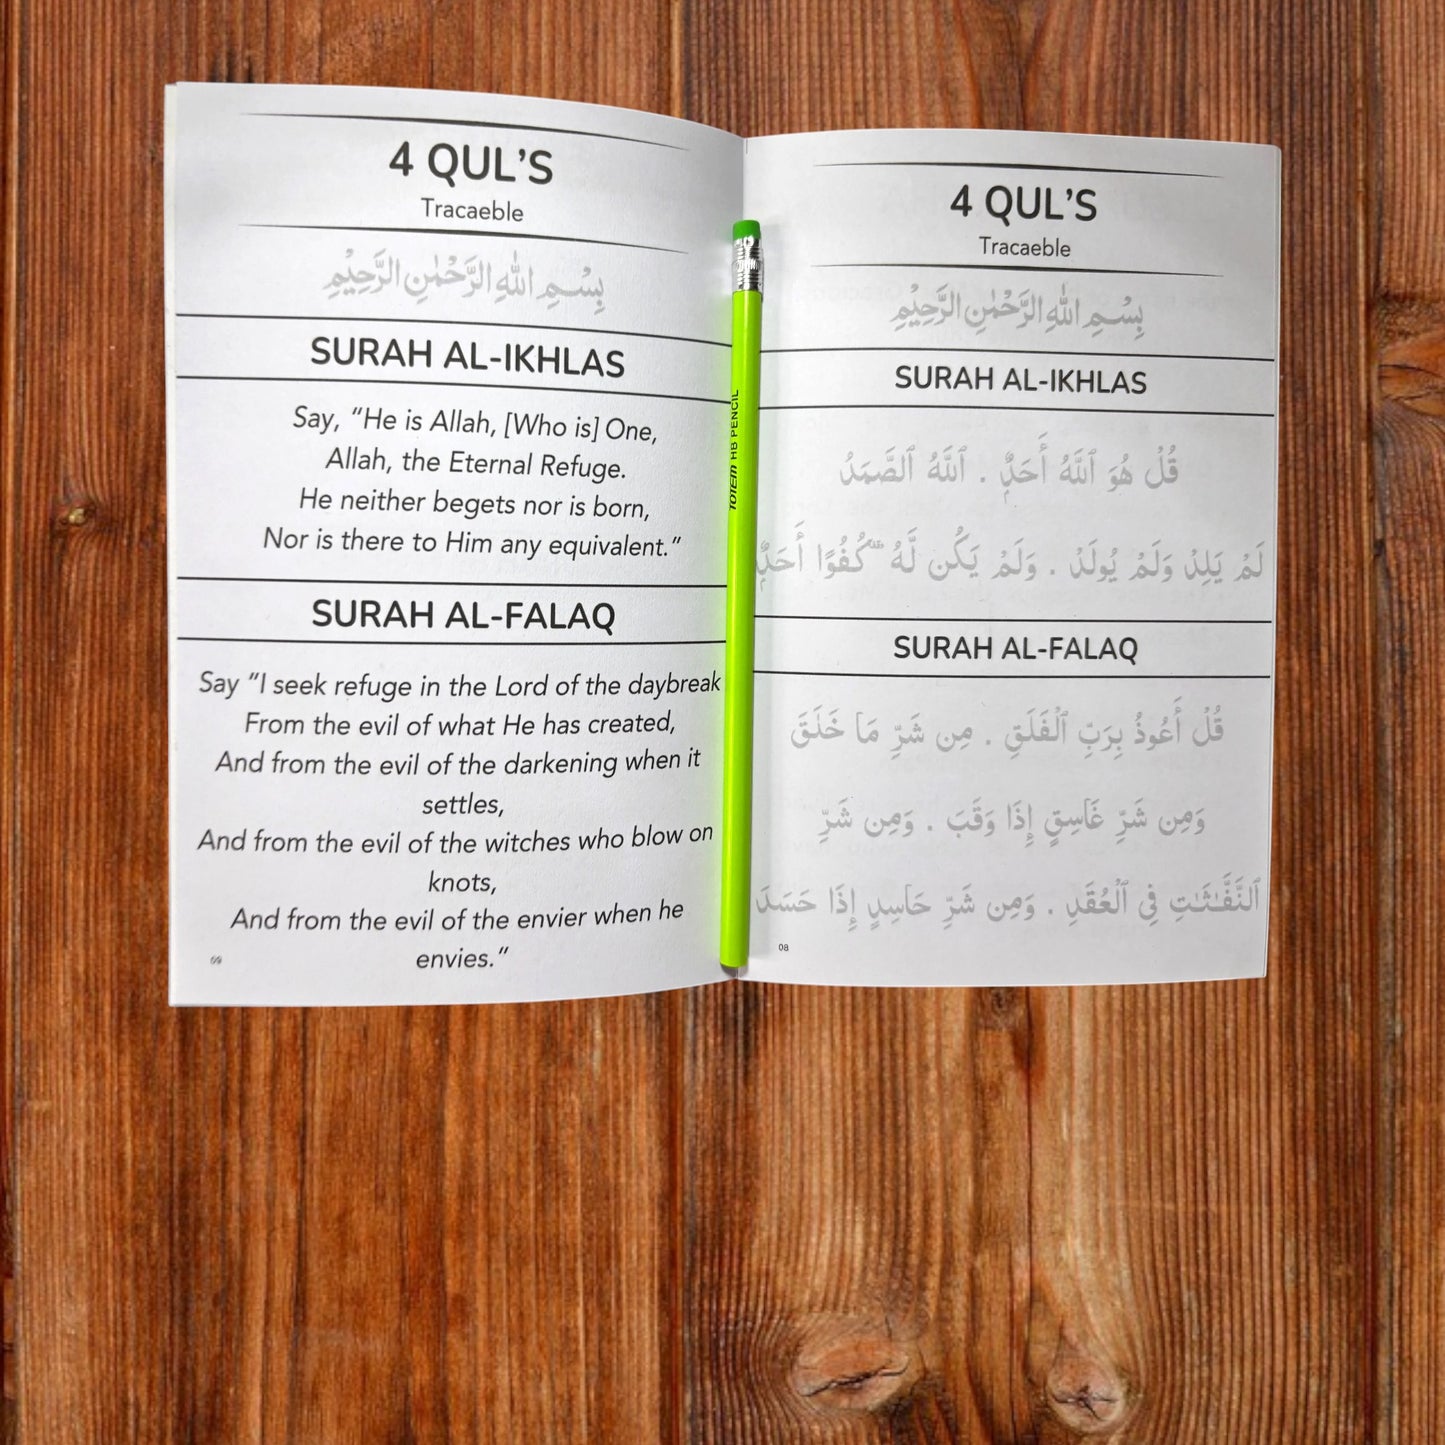 4 QUL'S
Tracaeble
بِسْمِ اللهِ الرَّحْمٰنِ الرَّحِيْمِ
SURAH AL-IKHLAS
Say, "He is Allah, [Who is] One,
Allah, the Eternal Refuge.
He neither begets nor is born,
Nor is there to Him any equivalent."
SURAH AL-FALAQ
Say "I seek refuge in the Lord of the daybreak
From the evil of what He has created,
And from the evil of the darkening when it
settles,
And from the evil of the witches who blow on
knots,
And from the evil of the envier when he
envies."
TOTEM HB PENCIL
4 QUL'S
Tracaeble
بِسْمِ اللهِ الرَّحْمٰنِ الرَّحِيْمِ
SURAH AL-IKHLAS
قُلْ هُوَ ٱللَّهُ أَحَدٌ . ٱللَّهُ ٱلصَّمَدُ
لَمْ يَلِدْ وَلَمْ يُولَدْ . وَلَمْ يَكُن لَّهُ كُفُوًا أَحَدٌ
SURAH AL-FALAQ
قُلْ أَعُوذُ بِرَبِّ ٱلْفَلَقِ . مِن شَرِّ مَا خَلَقَ
وَمِن شَرِّ غَاسِقٍ إِذَا وَقَبَ . وَمِن شَرِّ
ٱلنَّفَّـٰثَـٰتِ فِى ٱلْعُقَدِ . وَمِن شَرِّ حَاسِدٍ إِذَا حَسَدَ